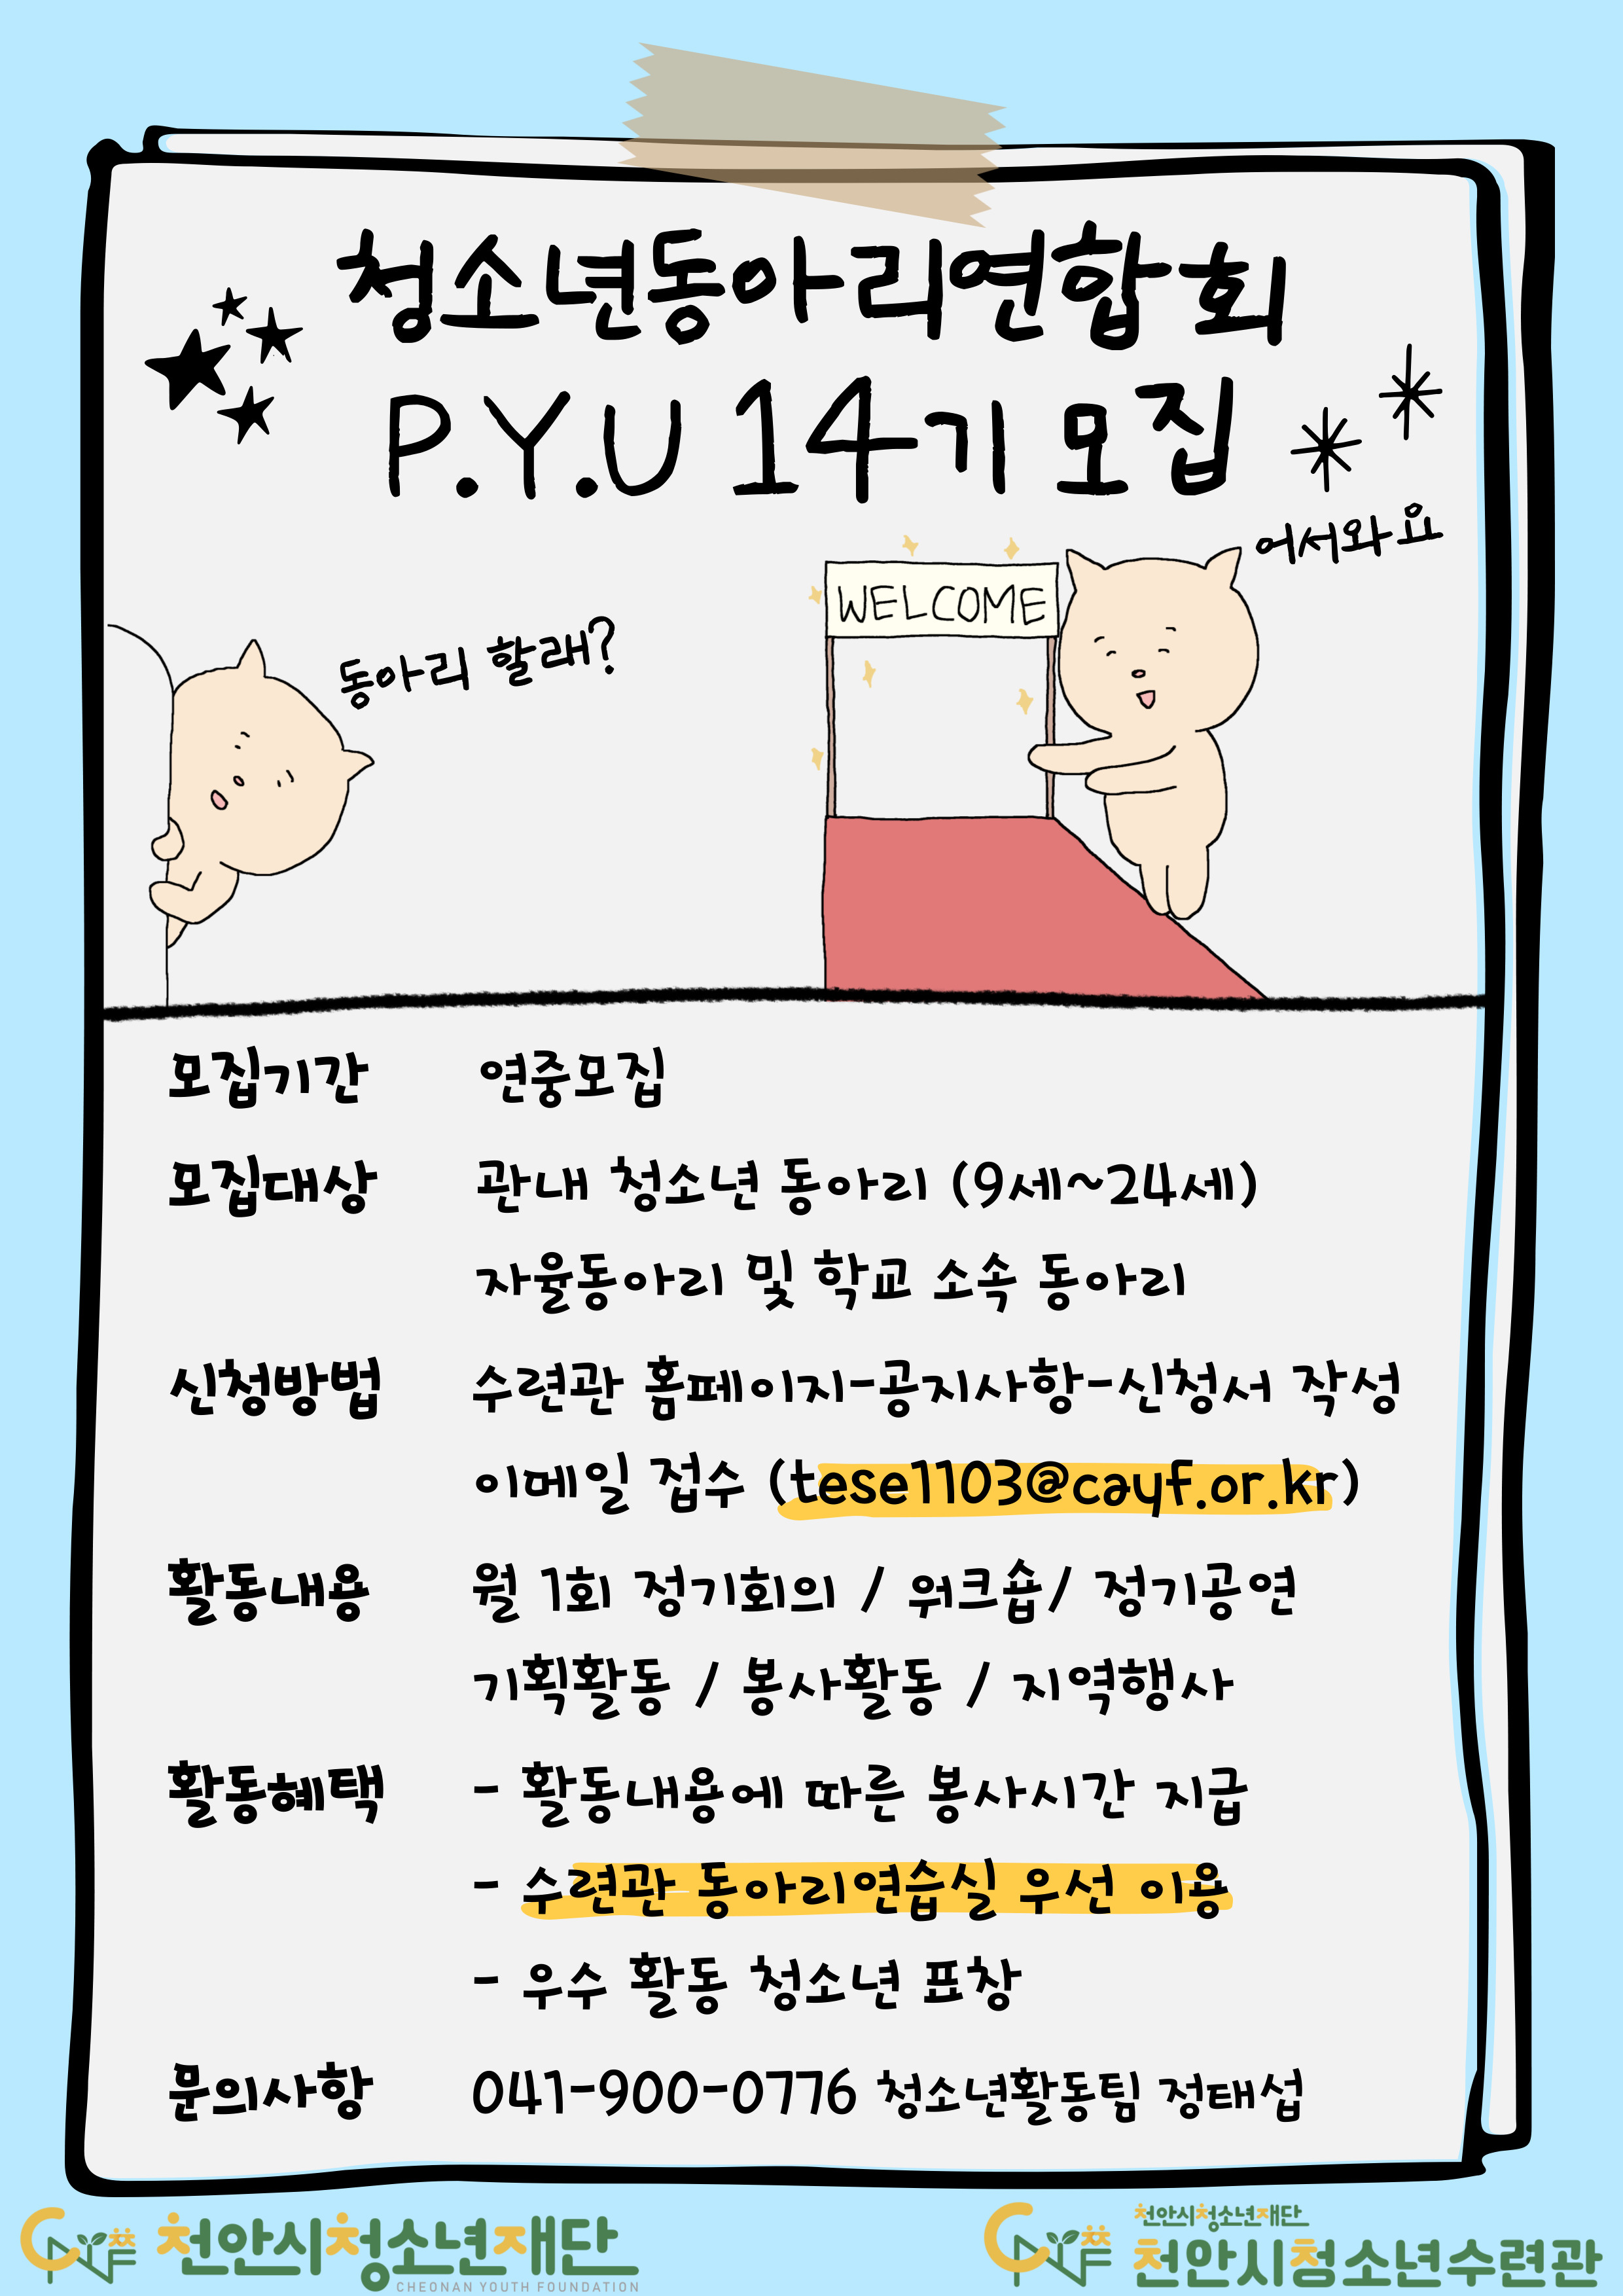 청소년동아리연합회
P.Y.U 14기 모집
어서와요
WELCOME
동아리 할래?
모집기간 연중모집
모집대상 관내 청소년 동아리 (9세~24세)
자율동아리 및 학교 소속 동아리
신청방법 수련관 홈페이지-공지사항-신청서 작성
이메일 접수 (tese1103@cayf.or.kr)
활동내용 월 1회 정기회의 / 워크숍/ 정기공연
기획활동 / 봉사활동 / 지역행사
활동혜택 - 활동내용에 따른 봉사시간 지급
- 수련관 동아리연습실 우선 이용
- 우수 활동 청소년 표창
문의사항 041-900-0776 청소년활동팀 정태섭
천안시청소년재단
CHEONAN YOUTH FOUNDATION
천안시청소년재단
천안시청소년수련관